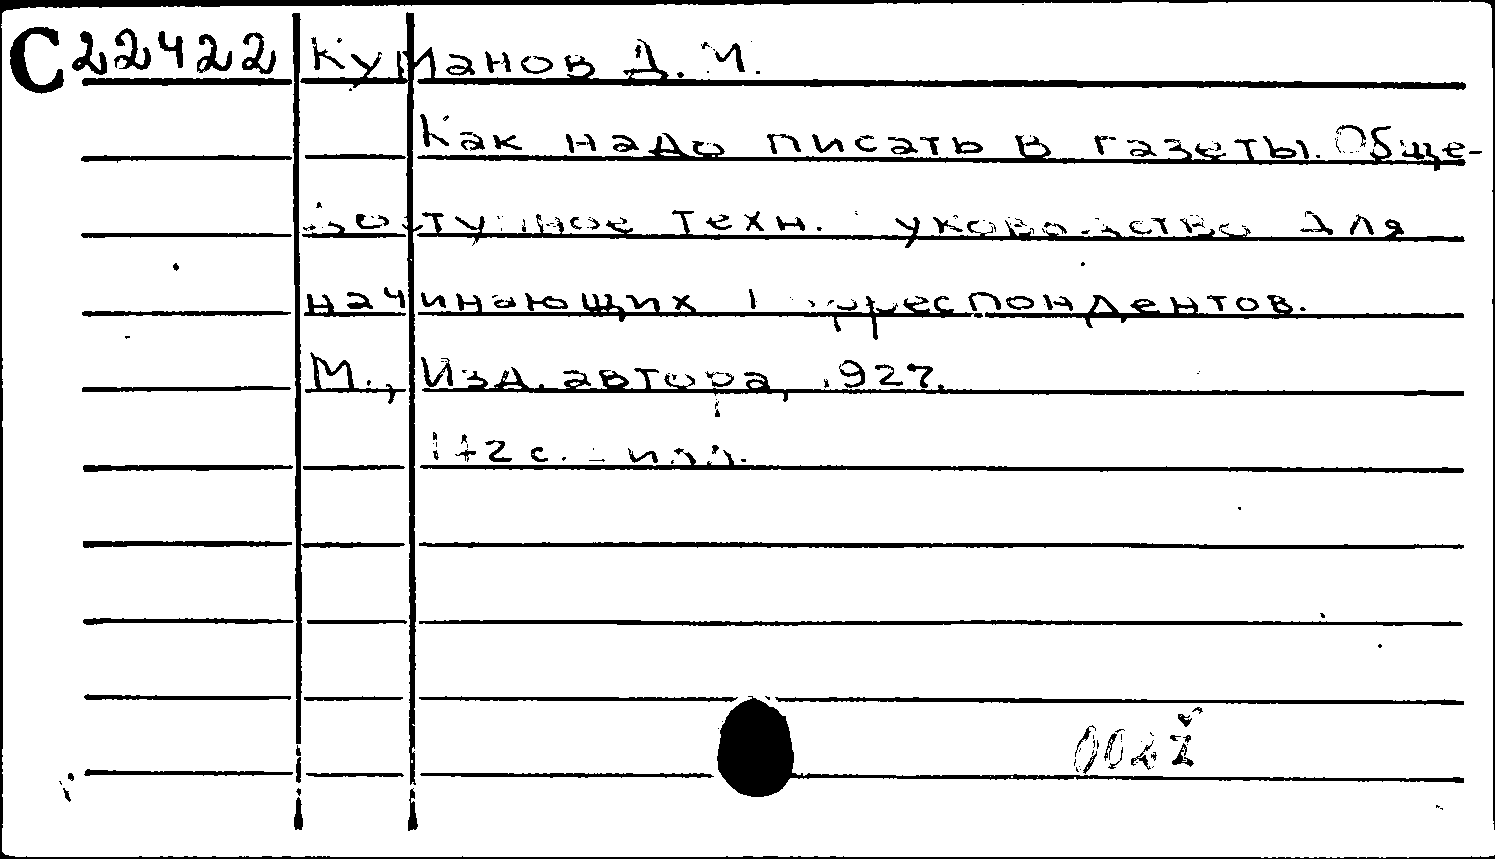 С22422 Куманов Д. И.
Как надо писать в газеты. Обще-
доступное техн. руководство для
начинающих корреспондентов.
М., Изд. автора, 1927.
с. - илл.